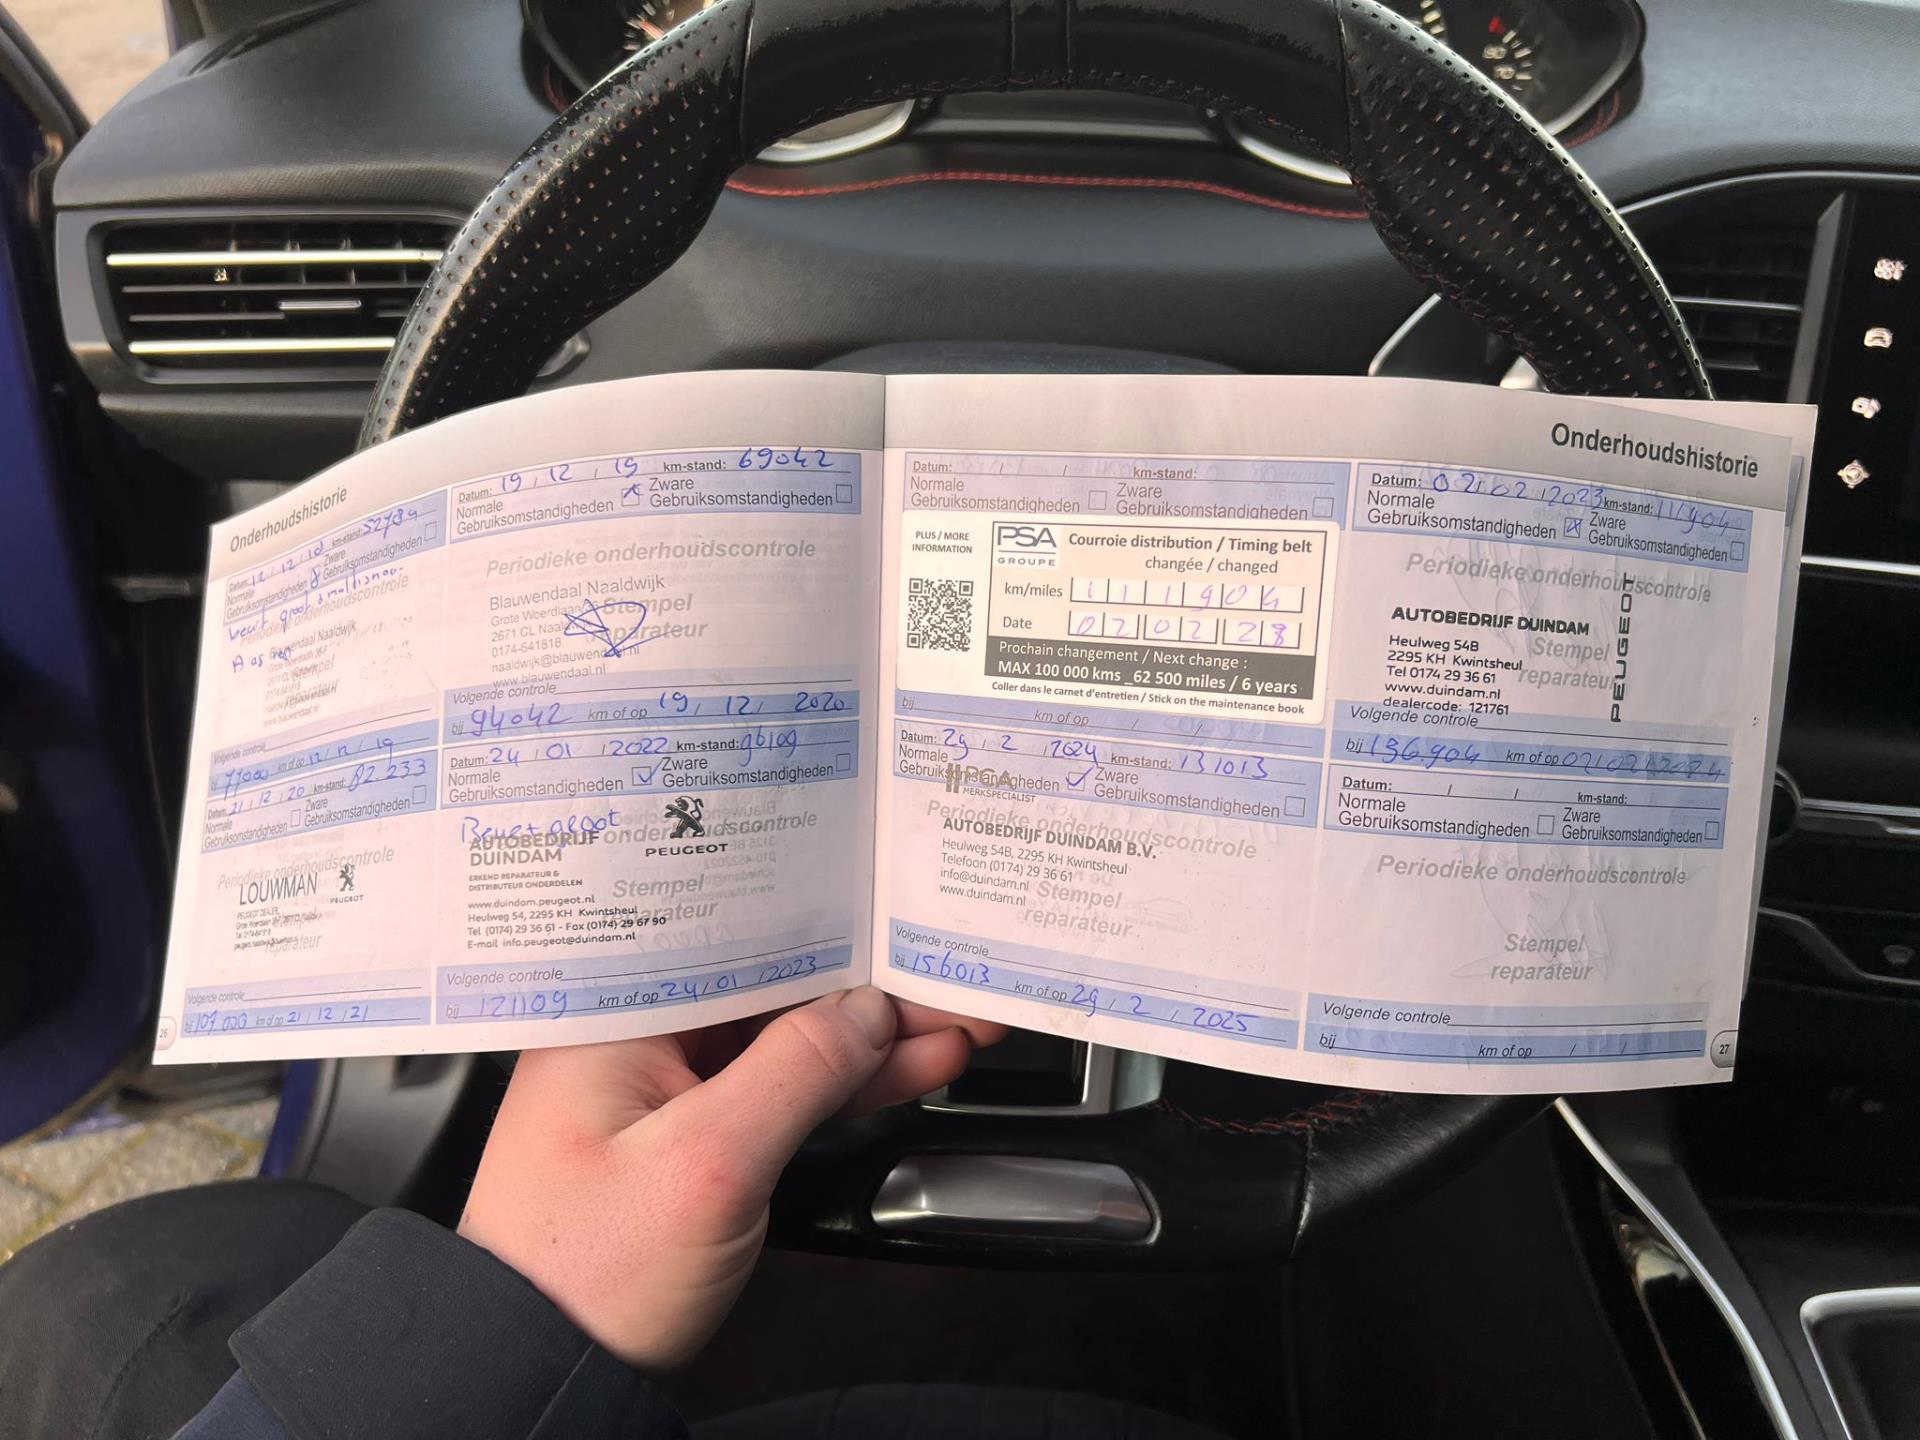 Onderhoudshistorie
Datum: 12 / 12 / 18 km-stand:
Normale Zware
Gebruiksomstandigheden Gebruiksomstandigheden
beurt groot
Periodieke onderhoudscontrole
Blauwendaal Naaldwijk
Stempel
reparateur
Volgende controle
bij 77000 km of op 12 / 12 / 19
Datum: 21 / 12 / 20 km-stand: 82.233
Normale Zware
Gebruiksomstandigheden Gebruiksomstandigheden
Periodieke onderhoudscontrole
LOUWMAN
PEUGEOT
PEUGEOT DEALER
Stempel
reparateur
Volgende controle
bij 107.000 km of op 21 / 12 / 21
26
Datum: 19 / 12 / 19 km-stand: 69042
Normale Zware
Gebruiksomstandigheden Gebruiksomstandigheden
Periodieke onderhoudscontrole
Blauwendaal Naaldwijk
Grote Woerdlaan
Stempel
2671 CL Naaldwijk
reparateur
0174-641818
naaldwijk@blauwendaal.nl
www.blauwendaal.nl
Volgende controle
bij 94042 km of op 19 / 12 / 2020
Datum: 24 / 01 / 2022 km-stand: 96109
Normale Zware
Gebruiksomstandigheden Gebruiksomstandigheden
Beurt groot
Periodieke onderhoudscontrole
AUTOBEDRIJF
DUINDAM
PEUGEOT
ERKEND REPARATEUR &
DISTRIBUTEUR ONDERDELEN
Stempel
reparateur
www.duindam.peugeot.nl
Heulweg 54, 2295 KH Kwintsheul
Tel (0174) 29 36 61 - Fax (0174) 29 67 90
E-mail info.peugeot@duindam.nl
Volgende controle
bij 121109 km of op 24 / 01 / 2023
Onderhoudshistorie
Datum: / / km-stand:
Normale Zware
Gebruiksomstandigheden Gebruiksomstandigheden
PLUS / MORE
INFORMATION
PSA
GROUPE
Courroie distribution / Timing belt
changée / changed
km/miles 111904
Date 02 02 23
Prochain changement / Next change :
MAX 100 000 kms _62 500 miles / 6 years
Coller dans le carnet d'entretien / Stick on the maintenance book
bij km of op / /
Datum: 29 / 2 / 2024 km-stand: 131013
Normale Zware
Gebruiksomstandigheden Gebruiksomstandigheden
PSA
MERKSPECIALIST
Periodieke onderhoudscontrole
AUTOBEDRIJF DUINDAM B.V.
Heulweg 54B, 2295 KH Kwintsheul
Telefoon (0174) 29 36 61
info@duindam.nl
www.duindam.nl
Stempel
reparateur
Volgende controle
bij 156013 km of op 29 / 2 / 2025
Datum: 02 / 02 / 2023 km-stand: 111904
Normale Zware
Gebruiksomstandigheden Gebruiksomstandigheden
Periodieke onderhoudscontrole
AUTOBEDRIJF DUINDAM
PEUGEOT
Heulweg 54B
2295 KH Kwintsheul
Tel 0174 29 36 61
www.duindam.nl
dealercode: 121761
Stempel
reparateur
Volgende controle
bij 136.904 km of op 02 / 02 / 2024
Datum: / / km-stand:
Normale Zware
Gebruiksomstandigheden Gebruiksomstandigheden
Periodieke onderhoudscontrole
Stempel
reparateur
Volgende controle
bij km of op / /
27